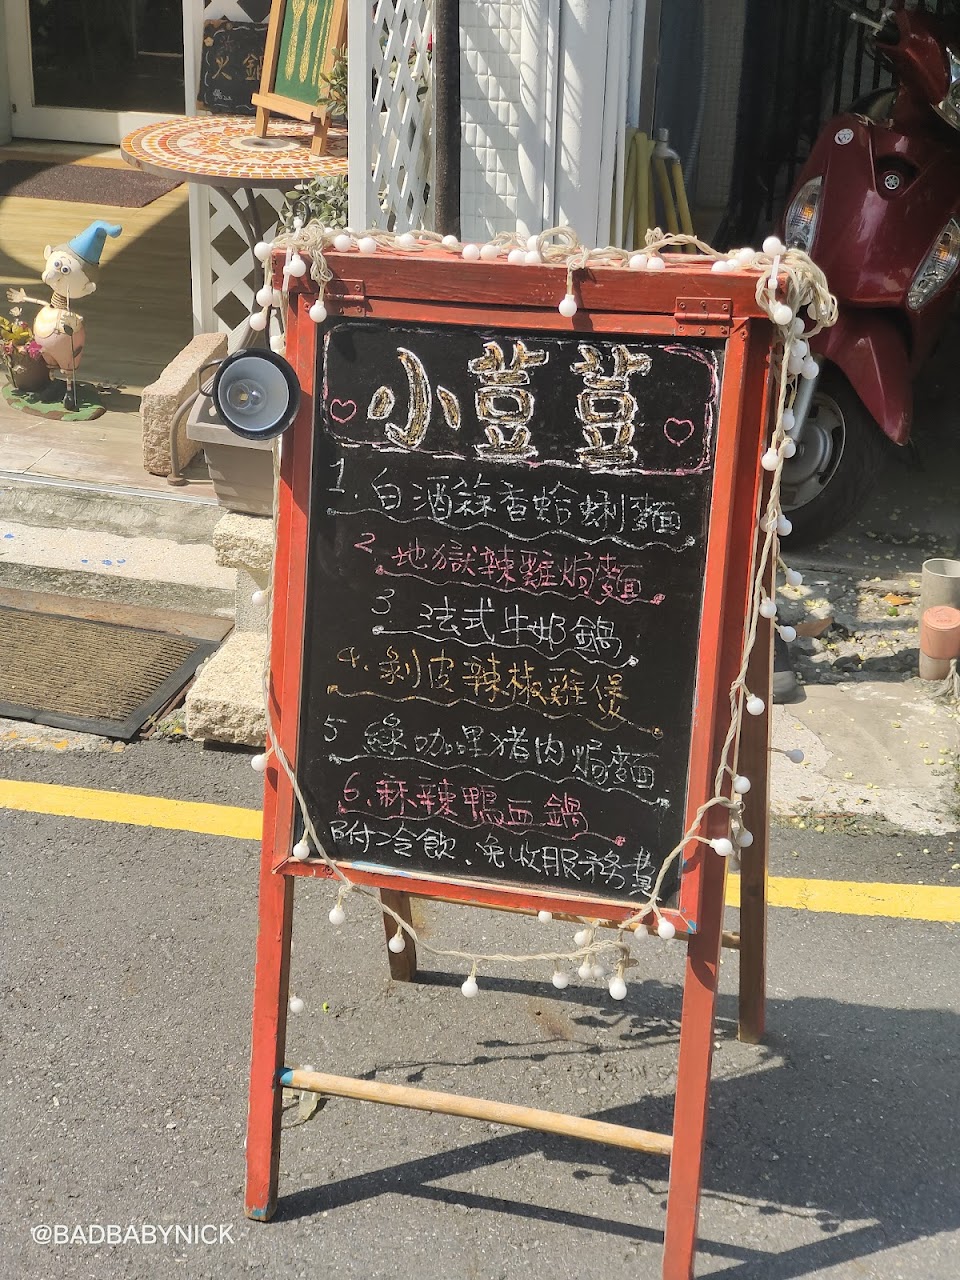 火鍋
小荳荳
1. 白酒蒜香蛤蜊麵
2 地獄辣雞焗麵
3 法式牛奶鍋
4. 剝皮辣椒雞煲
5 綠咖哩猪肉焗麵
6. 麻辣鴨血鍋
附冷飲、免收服務費
@BADBABYNICK